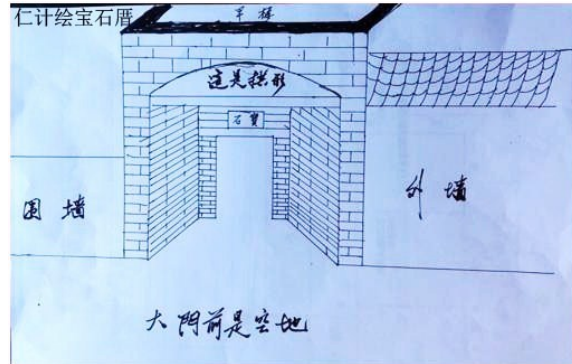 仁计绘宝石厝
这是拱形
石寶
围墙
外墙
大门前是空地